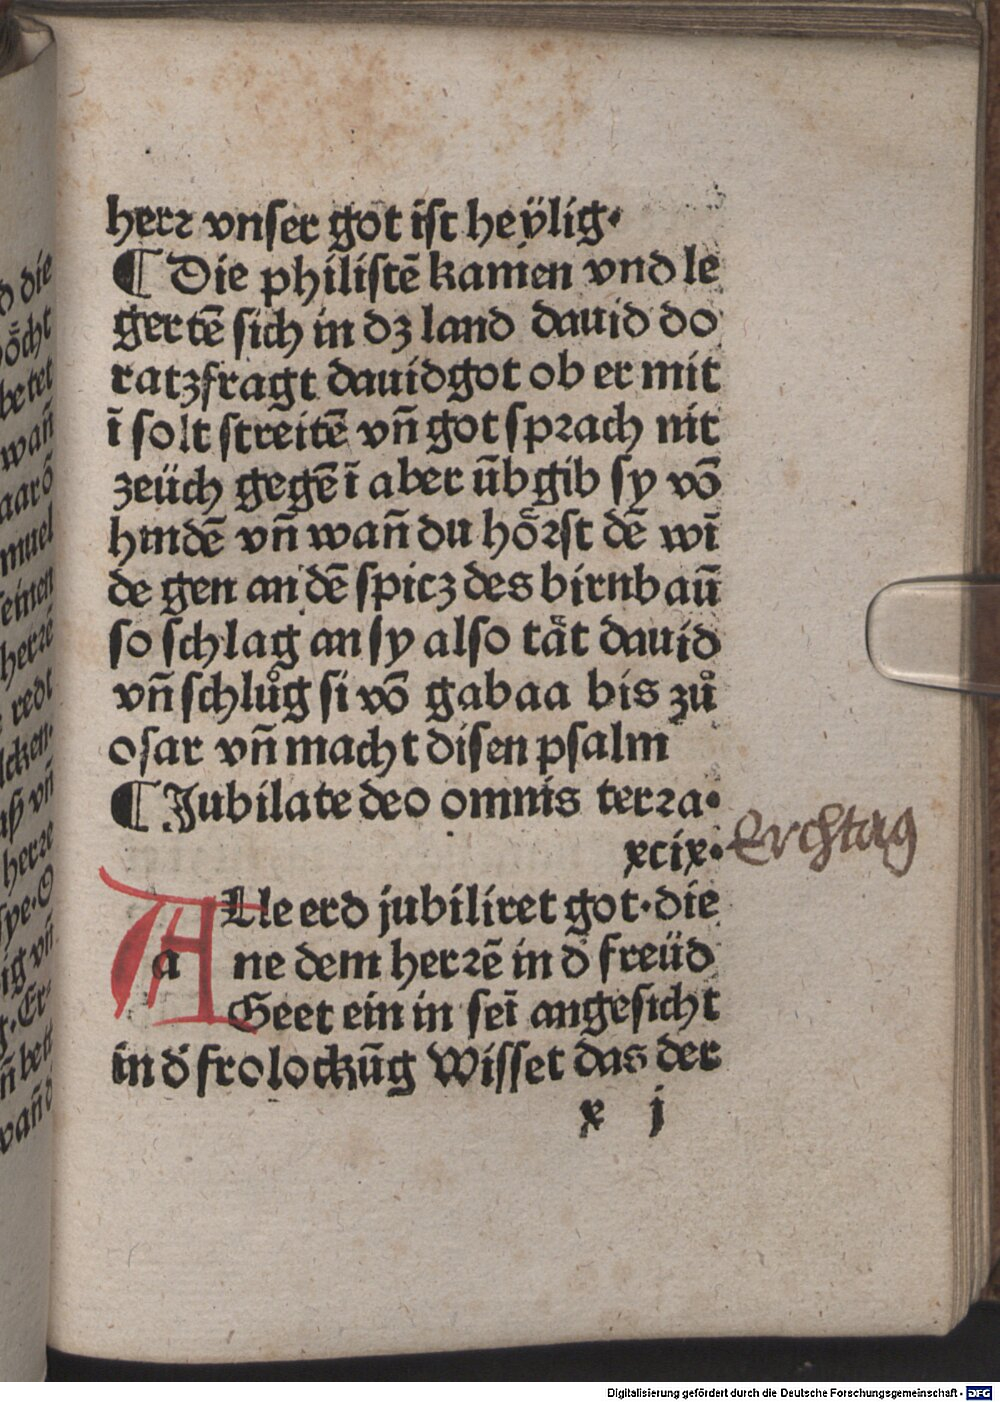 herꝛ vnser got ist heÿlig·
¶ Die philistē kamen vnd le
gertē sich in dz land dauid do
ratzfragt dauidgot ob er mit
ī solt streitē vn̄ got spꝛach nit
zeüch gegē ī aber ūb gib sy vō
hindē vn̄ wan̄ du höꝛst dē wī
de gen an dē spicz des birnbaū
so schlag an sy also tät dauid
vn̄ schlůg si vō gabaa bis zů
osar vn̄ macht disen psalm
¶ Jubilate deo omnis terꝛa·
xcix·
Erchtag
ALle erd jubiliret got·die
a ne dem herꝛē in d̄ freüd
Geet ein in seī angesicht
in d̄ frolockūg Wisset das der
x j
d die
öcht
betet
wan̄
aarō
muel
seinen
herꝛē
redt
lcken·
vn̄
herꝛe
spe·O
ig vn̄
Er⸗
n̄ bett
wan̄ d
Digitalisierung gefördert durch die Deutsche Forschungsgemeinschaft - DFG